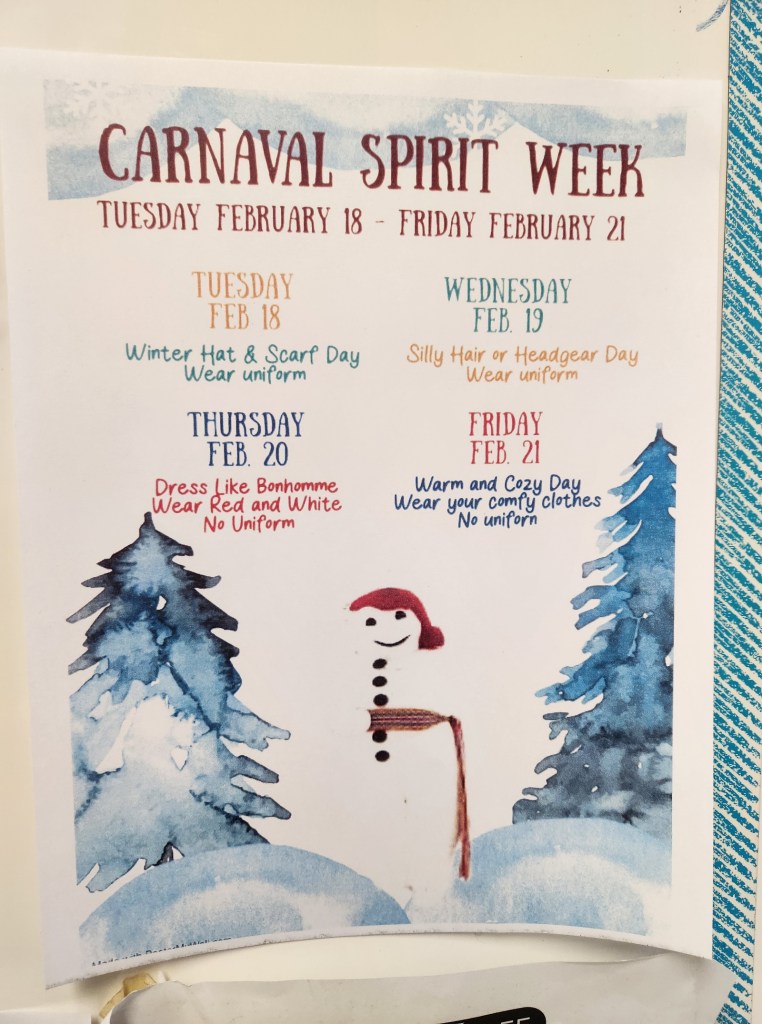 CARNAVAL SPIRIT WEEK
TUESDAY FEBRUARY 18 - FRIDAY FEBRUARY 21
TUESDAY
FEB 18
Winter Hat & Scarf Day
Wear uniform
WEDNESDAY
FEB. 19
Silly Hair or Headgear Day
Wear uniform
THURSDAY
FEB. 20
Dress Like Bonhomme
Wear Red and White
No Uniform
FRIDAY
FEB. 21
Warm and Cozy Day
Wear your comfy clothes
No uniforn